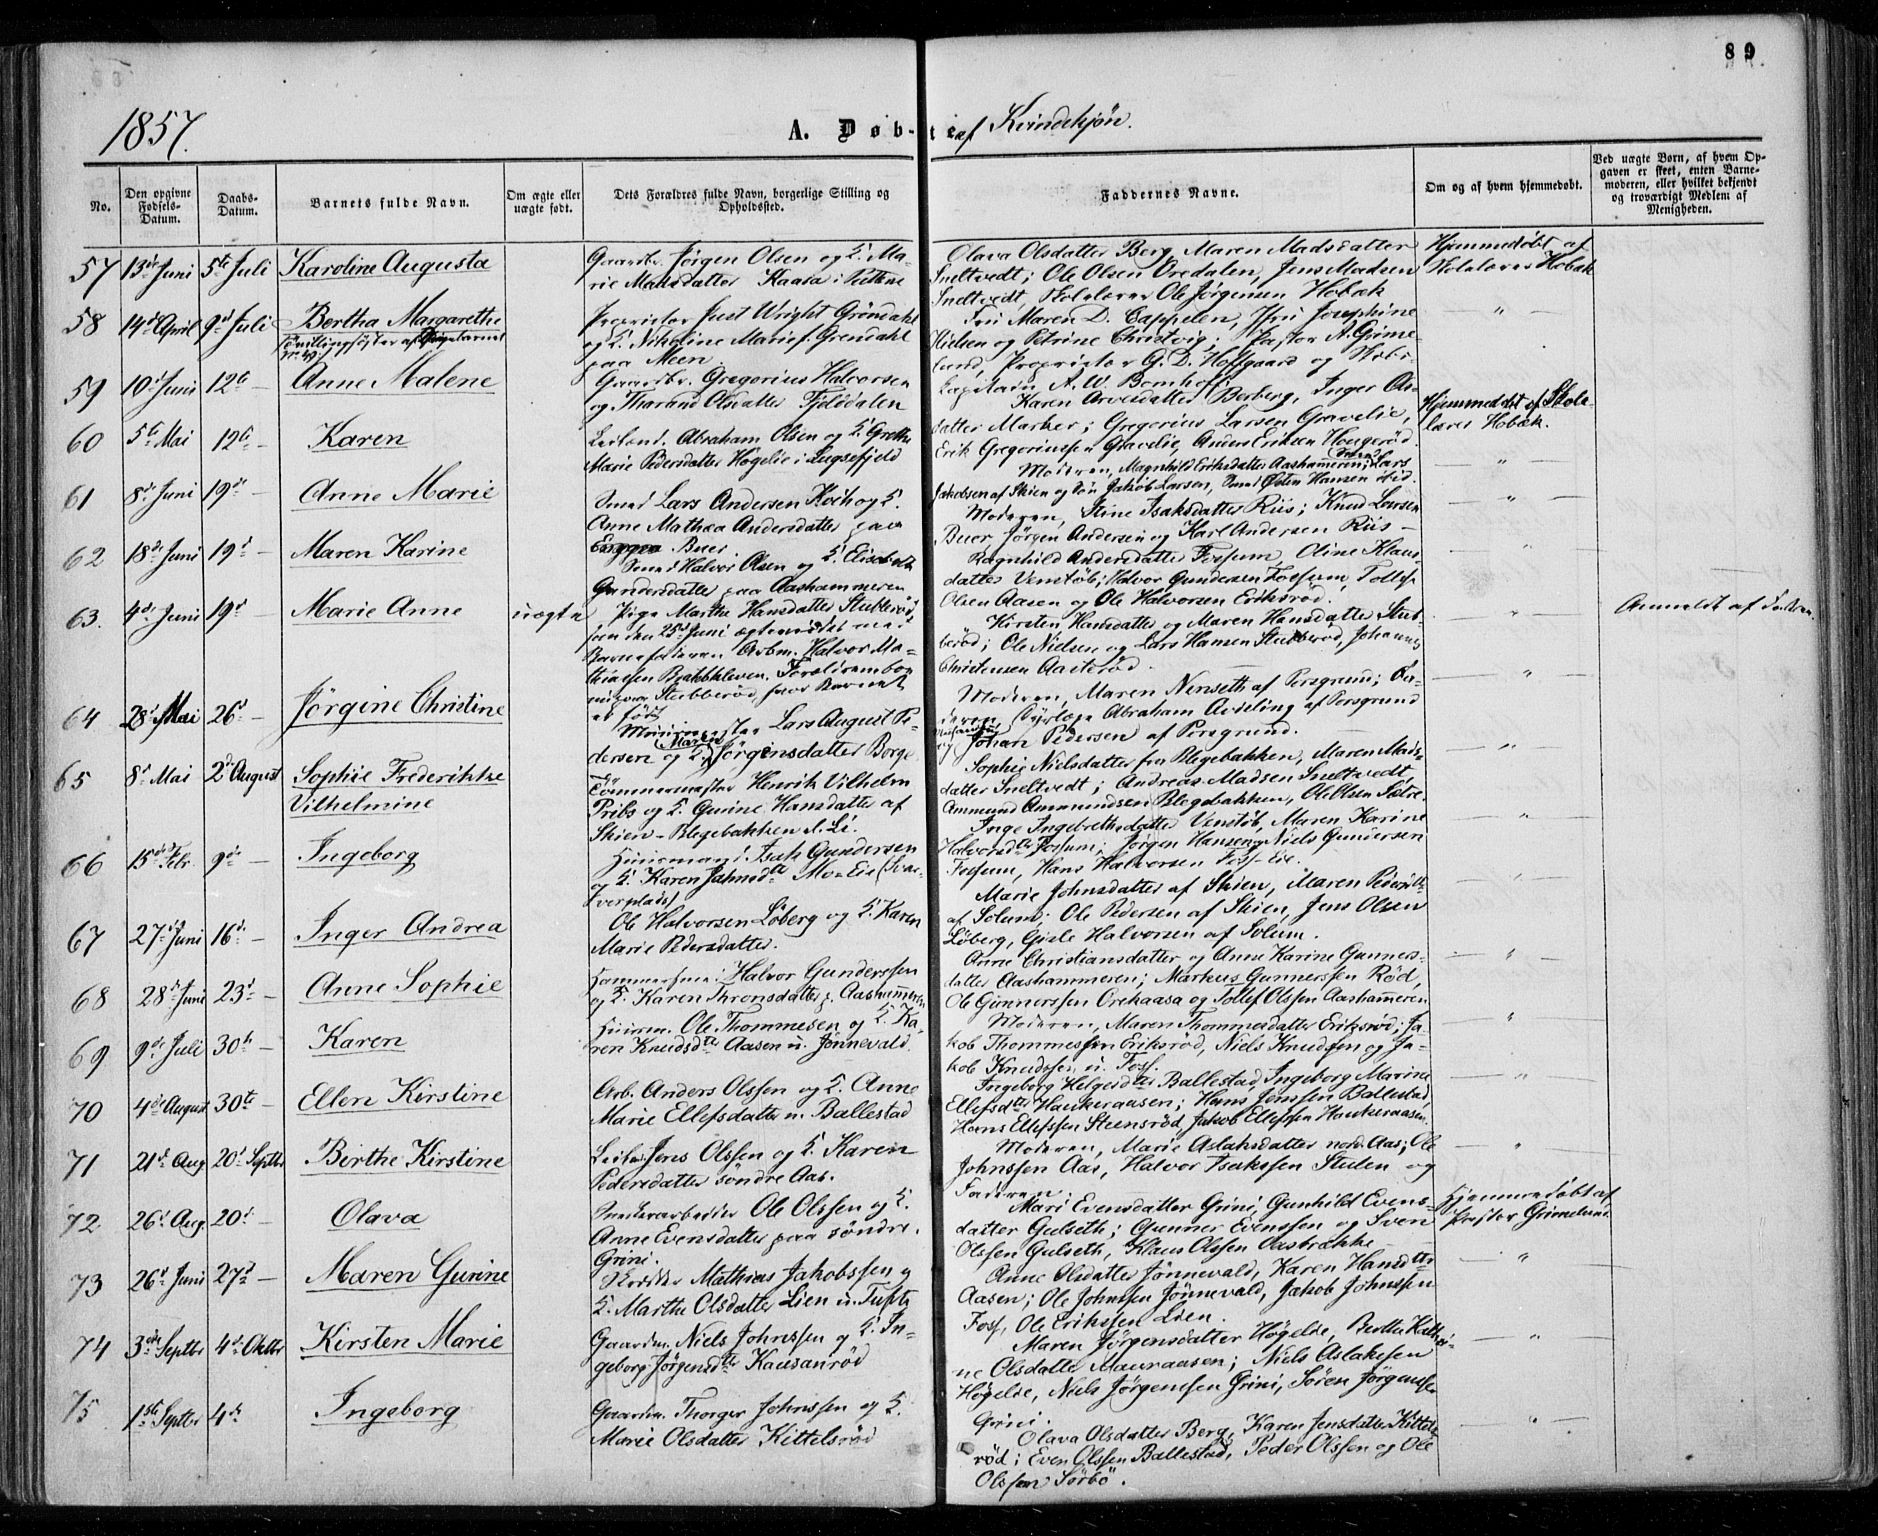 89
1857.
A. Døbte af Kvindekjøn.
No.
Den opgivne Fødsels-Datum.
Daabs-Datum.
Barnets fulde Navn.
Om ægte eller uægte født.
Dets Forældres fulde Navn, borgerlige Stilling og Opholdssted.
Faddernes Navne.
Om og af hvem hjemmedøbt.
Ved uægte Børn, af hvem Opgaven er skeet, enten Barnemoderen, eller hvilket bekjendt og troværdigt Medlem af Menigheden.
57 13de Juni 5te Juli Karoline Augusta
Gaardbr. Jørgen Olsen og K. Ma-
rie Madsdatter Kaasa i
Olava Olsdatter Berg, Maren Madsdatter
Sneltvedt; Ole Olsen Vredalen, Jens Madsen
Sneltvedt, Skolelærer Ole Jørgensen Hobæk
Hjemmedøbt af
Skolelærer Hobæk
58 14de April 9de Juli Bertha Margarethe
(Tvillingsøster af Drengebarnet
Nr. 49)
Proprietær Just Wright Grøndahl
og K. Nikoline Marie f. Grøndahl
paa Meen.
Fru Maren D. Cappelen, Fru Josephine
Nielsen og Petrine Christvig; Pastor A. Grime-
lund, Proprietær G. D. Hoffgaard og Skibs-
kapitain A. W. Bomhoff.
— " —
59 10de Juni 12te — Anne Malene
Gaardbr. Gregorius Halvorsen
og Tharand Olsdatter Fjelddalen
Karen Arvesdatter Berberg, Inger Ols-
datter Marker; Gregorius Larsen Gravelie,
Erik Gregoriussen Gravelie, Anders Eriksen Hougerød.
Hjemmedøbt af Skole-
lærer Hobæk.
60 5te Mai 12te — Karen
Leilend. Abraham Olsen og K. Grethe
Marie Pedersdatter Høgelie i Luksefjeld
Moderen, Magnhild Eriksdatter Aashameren; Lars
Jakobsen af Skien og Søn Jakob Larsen, Smed Østen Hansen ibid.
— " —
61 8de Juni 19de — Anne Marie
Smed Lars Andersen Koch og K.
Anne Mathea Andersdatter paa
Buer.
Moderen, Stine Isaksdatter Riis; Knud Larsen
Buer, Jørgen Andersen og Karl Andersen Riis —
— " —
62 18de Juni 19de — Maren Karine
Smed Halvor Olsen og K. Elisabeth
Gundersdatter paa Aashammeren
Ragnhild Andersdatter Fossum, Oline Klaus-
datter Venstøb; Halvor Gundersen Fossum, Tollef
Olsen Aasen og Ole Halvorsen Eriksrød.
— " —
63. 4de Juni 19de — Marie Anne uægte
Pige Marthe Hansdatter Stubberød
som den 25de Juni ægteviedes med
Barnefaderen Arbm. Halvor Ma-
thiasen Brækkekleven. Forældrene bo
nu paa Stubberød, hvor Barnet
er født
Kirsten Hansdatter og Maren Hansdatter Stub-
berød; Ole Nielsen og Lars Hansen Stubberød, Johannes
Christensen Aasterød.
— " —
Anmeldt af Faderen.
64 28de Mai 26de — Jørgine Christine
Muurmester Lars August Pe-
dersen og K. Maren Jørgensdatter Borge
Moderen, Maren Nenseth af Porsgrund; Fa-
deren, Dyrlæge Abraham af Porsgrund
Johan Pedersen af Porsgrund.
— " —
65 8de Mai 2den August Sophie Frederikke
Vilhelmine
Tømmermester Henrik Vilhelm
Pribs og K. Gurine Hansdatter af
Skien — Blegebakken
Sophie Nielsdatter fra Blegebakken, Maren Mads-
datter Sneltvedt; Andreas Madsen Sneltvedt,
Ammund Ammundsen Blegebakken, Ole Olsen Sætre.
— " —
66 15de Febr. 9de — Ingeborg
Huusmand Isak Gundersen
og K. Karen Jahnsdtr Mo-Eie (Svar-
verplads)
Inge Ingebrethsdatter Venstøb, Maren Karine
Halvorsdtr Fossum; Jørgen Hansen, Niels Gundersen
Fossum, Hans Halvorsen Foss-Eie.
— " —
67 27de Juni 16de — Inger Andrea
Ole Halvorsen Løberg og K. Karen
Marie Pedersdatter.
Marie Johnsdatter af Skien, Maren Pedersdtr
af Solum; Ole Pedersen af Skien, Jens Olsen
Løberg, Gisle Halvorsen af Solum.
— " —
68 28de Juni 23de — Anne Sophie
Hammersmed Halvor Gunderssen
og K. Karen Thronsdatter p. Aashammeren
Anne Christiansdatter og Anne Karine Gunners-
datter Aashammeren; Markus Gunnerssen Rød,
Ole Gunnerssen Orekaasa og Tollef Olssen Aashammeren
— " —
69 9de Juli 30te — Karen
Huusm. Ole Thommesen og K. Ka-
ren Knudsdtr Aasen u. Jønnevald
Moderen, Maren Thommesdatter Eriksrød; Ja-
kob Thommessen Eriksrød, Niels Knudssen og Ja-
kob Knudssen u. Foss.
— " —
70 4de August 30te — Ellen Kirstine
Arb. Anders Olssen og K. Anne
Marie Ellefsdatter u. Ballestad
Ingeborg Helgesdtr Ballestad, Ingeborg Marine
Ellefsdtr Haukeraasen; Hans Jenssen Ballestad,
Hans Ellefssen Steensrød, Jakob Ellefssen Haukeraasen.
— " —
71 21de Aug. 20de Septbr Birthe Kirstine
Leilend. Jens Olssen og K. Karen
Pedersdatter søndre Aas.
Moderen, Marie Aslaksdatter nord. Aas; Ole
Johnssen Aas, Halvor Isakssen Stulen og
Faderen.
— " —
72 26de Aug. 20de — Olava
Ole Olssen og K.
Anne Evensdatter paa søndre
Grini.
Mari Evensdatter Grini, Gunhild Evens-
datter Gulseth; Gunner Evenssen og Sven
Olssen Gulseth, Klaus Olssen Aasbrække —
Hjemmedøbt af
Pastor Grimelund.
73 26de Juni 27de — Maren Gurine
Skrædder Mathias Jakobssen og
K. Marthe Olsdatter Lien u. Tufte
Anne Olsdatter Jønnevald, Karen Hansdtr
Aasen; Ole Johnssen Jønnevald, Jakob Johnssen
Foss, Ole Erikssen Lien.
— " —
74 3die Septbr 4de Oktbr Kirsten Marie
Gaardm. Niels Johnssen og K. In-
geborg Jørgensdtr Kausanrød
Maren Jørgensdatter Høgelde, Berthe Kathri-
ne Olsdatter Mauraasen; Niels Aslaksen
Høgelde, Niels Jørgenssen Grini, Søren Jørgenssen
Grini.
— " —
75 1ste Septbr 4de Ingeborg
Gaardm. Thorger Johnssen og K.
Marie Olsdatter Kittelsrød
Olava Olsdatter Berg, Karen Jensdatter Kittels-
rød; Even Olssen Ballestad, Peder Olssen og Ole
Olssen Sørbø.
— " —